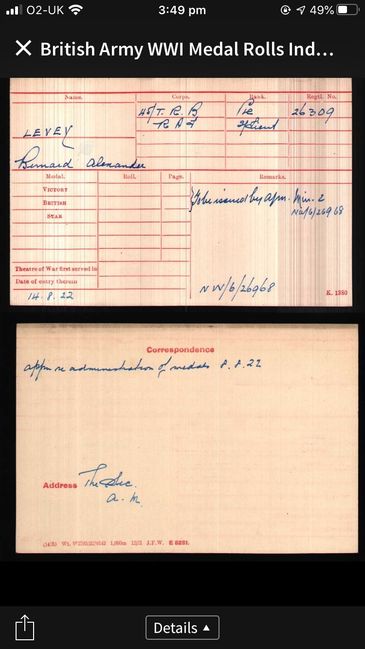 O2-UK 3:49 pm 49%
× British Army WWI Medal Rolls Ind...
Name. Corps. Rank. Regtl. No.
45/T. R. B Pte 26309
R A F
LEVEY
Bernard Alexander
Medal. Roll. Page. Remarks.
VICTORY
BRITISH
STAR
To be issued by Apm. Min. 2
NW/6/26968
Theatre of War first served in
Date of entry therein
NW/6/26968
14. 8. 22 K. 1380
Correspondence
appn re administration of medals 8.8.22
Address The Sec.
A. M.
E 5281.
Details ▲